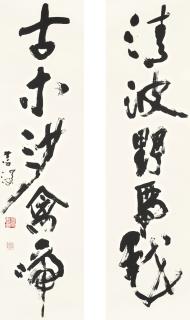 清波野馬戲
古木沙禽啼